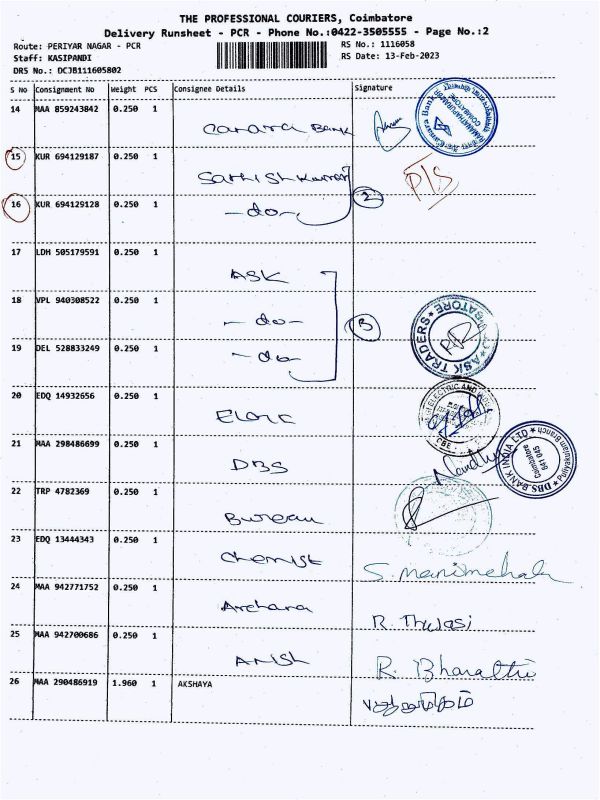 THE PROFESSIONAL COURIERS, Coimbatore
Delivery Runsheet - PCR - Phone No.:0422-3505555 - Page No.:2
Route: PERIYAR NAGAR - PCR
RS No.: 1116058
Staff: KASIPANDI
RS Date: 13-Feb-2023
DRS No.: DCJB111605802
S No Consignment No Weight PCS Consignee Details Signature
14 MAA 859243842 0.250 1 Canara Bank
15 KUR 694129187 0.250 1 Sathishkumar
16 KUR 694129128 0.250 1 -do- 2
17 LDH 505179591 0.250 1 ASK
18 VPL 940308522 0.250 1 -do- 3
ASK TRADERS
19 DEL 528833249 0.250 1 -do-
20 EDQ 14932656 0.250 1
21 MAA 298486699 0.250 1 DBS Nandhu
DBS BANK INDIA LTD
Coimbatore
641 045
22 TRP 4782369 0.250 1 Bureau
23 EDQ 13444343 0.250 1 Chemist S. Manimehala
24 MAA 942771752 0.250 1 Archana R. Thulasi
25 MAA 942700686 0.250 1 R. Bharathi
26 MAA 290486919 1.960 1 AKSHAYA